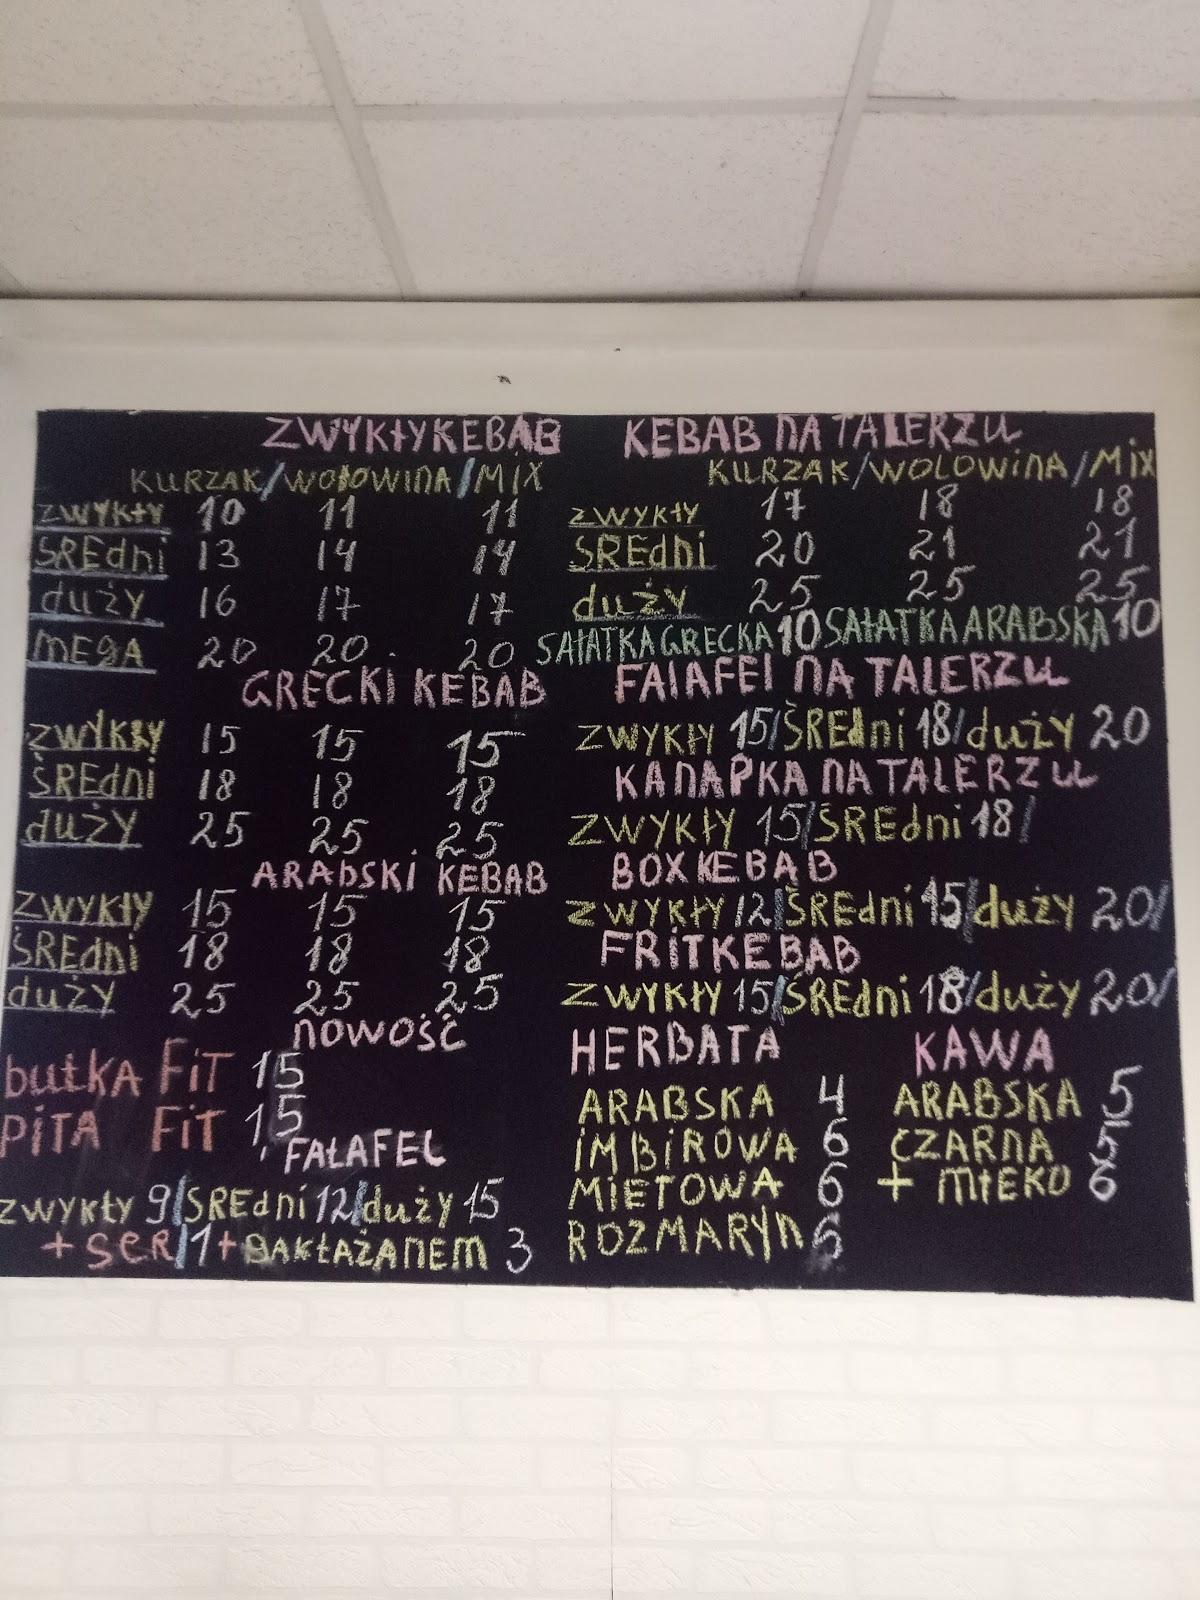 ZWYKŁY KEBAB
KURZAK/WOŁOWINA/MIX
ZWYKŁY 10 11 11
ŚREdni 13 14 14
duży 16 17 17
MEGA 20 20 20
GRECKI KEBAB
ZWYKŁY 15 15 15
ŚREdni 18 18 18
duży 25 25 25
ARABSKI KEBAB
ZWYKŁY 15 15 15
ŚREdni 18 18 18
duży 25 25 25
nowość
bułKA FiT 15
PiTA FiT 15
FAŁAFEL
ZWYKŁY 9/ŚREdni 12/duży 15
+ SER/1+BAKŁAŻANEM 3
KEBAB NA TALERZU
KURZAK/WOLOWINA/MIX
ZWYKŁY 17 18 18
ŚREdni 20 21 21
duży 25 25 25
SAŁATKA GRECKA 10 SAŁATKA ARABSKA 10
FALAFEL NA TALERZU
ZWYKŁY 15/ŚREdni 18/duży 20
KANAPKA NA TALERZU
ZWYKŁY 15/ŚREdni 18/
BOX KEBAB
ZWYKŁY 12/ŚREdni 15/duży 20/
FRITKEBAB
ZWYKŁY 15/ŚREdni 18/duży 20/
HERBATA
ARABSKA 4
IMBIROWA 6
MIETOWA 6
ROZMARYN
KAWA
ARABSKA 5
CZARNA 5
+ MŁEKO 6